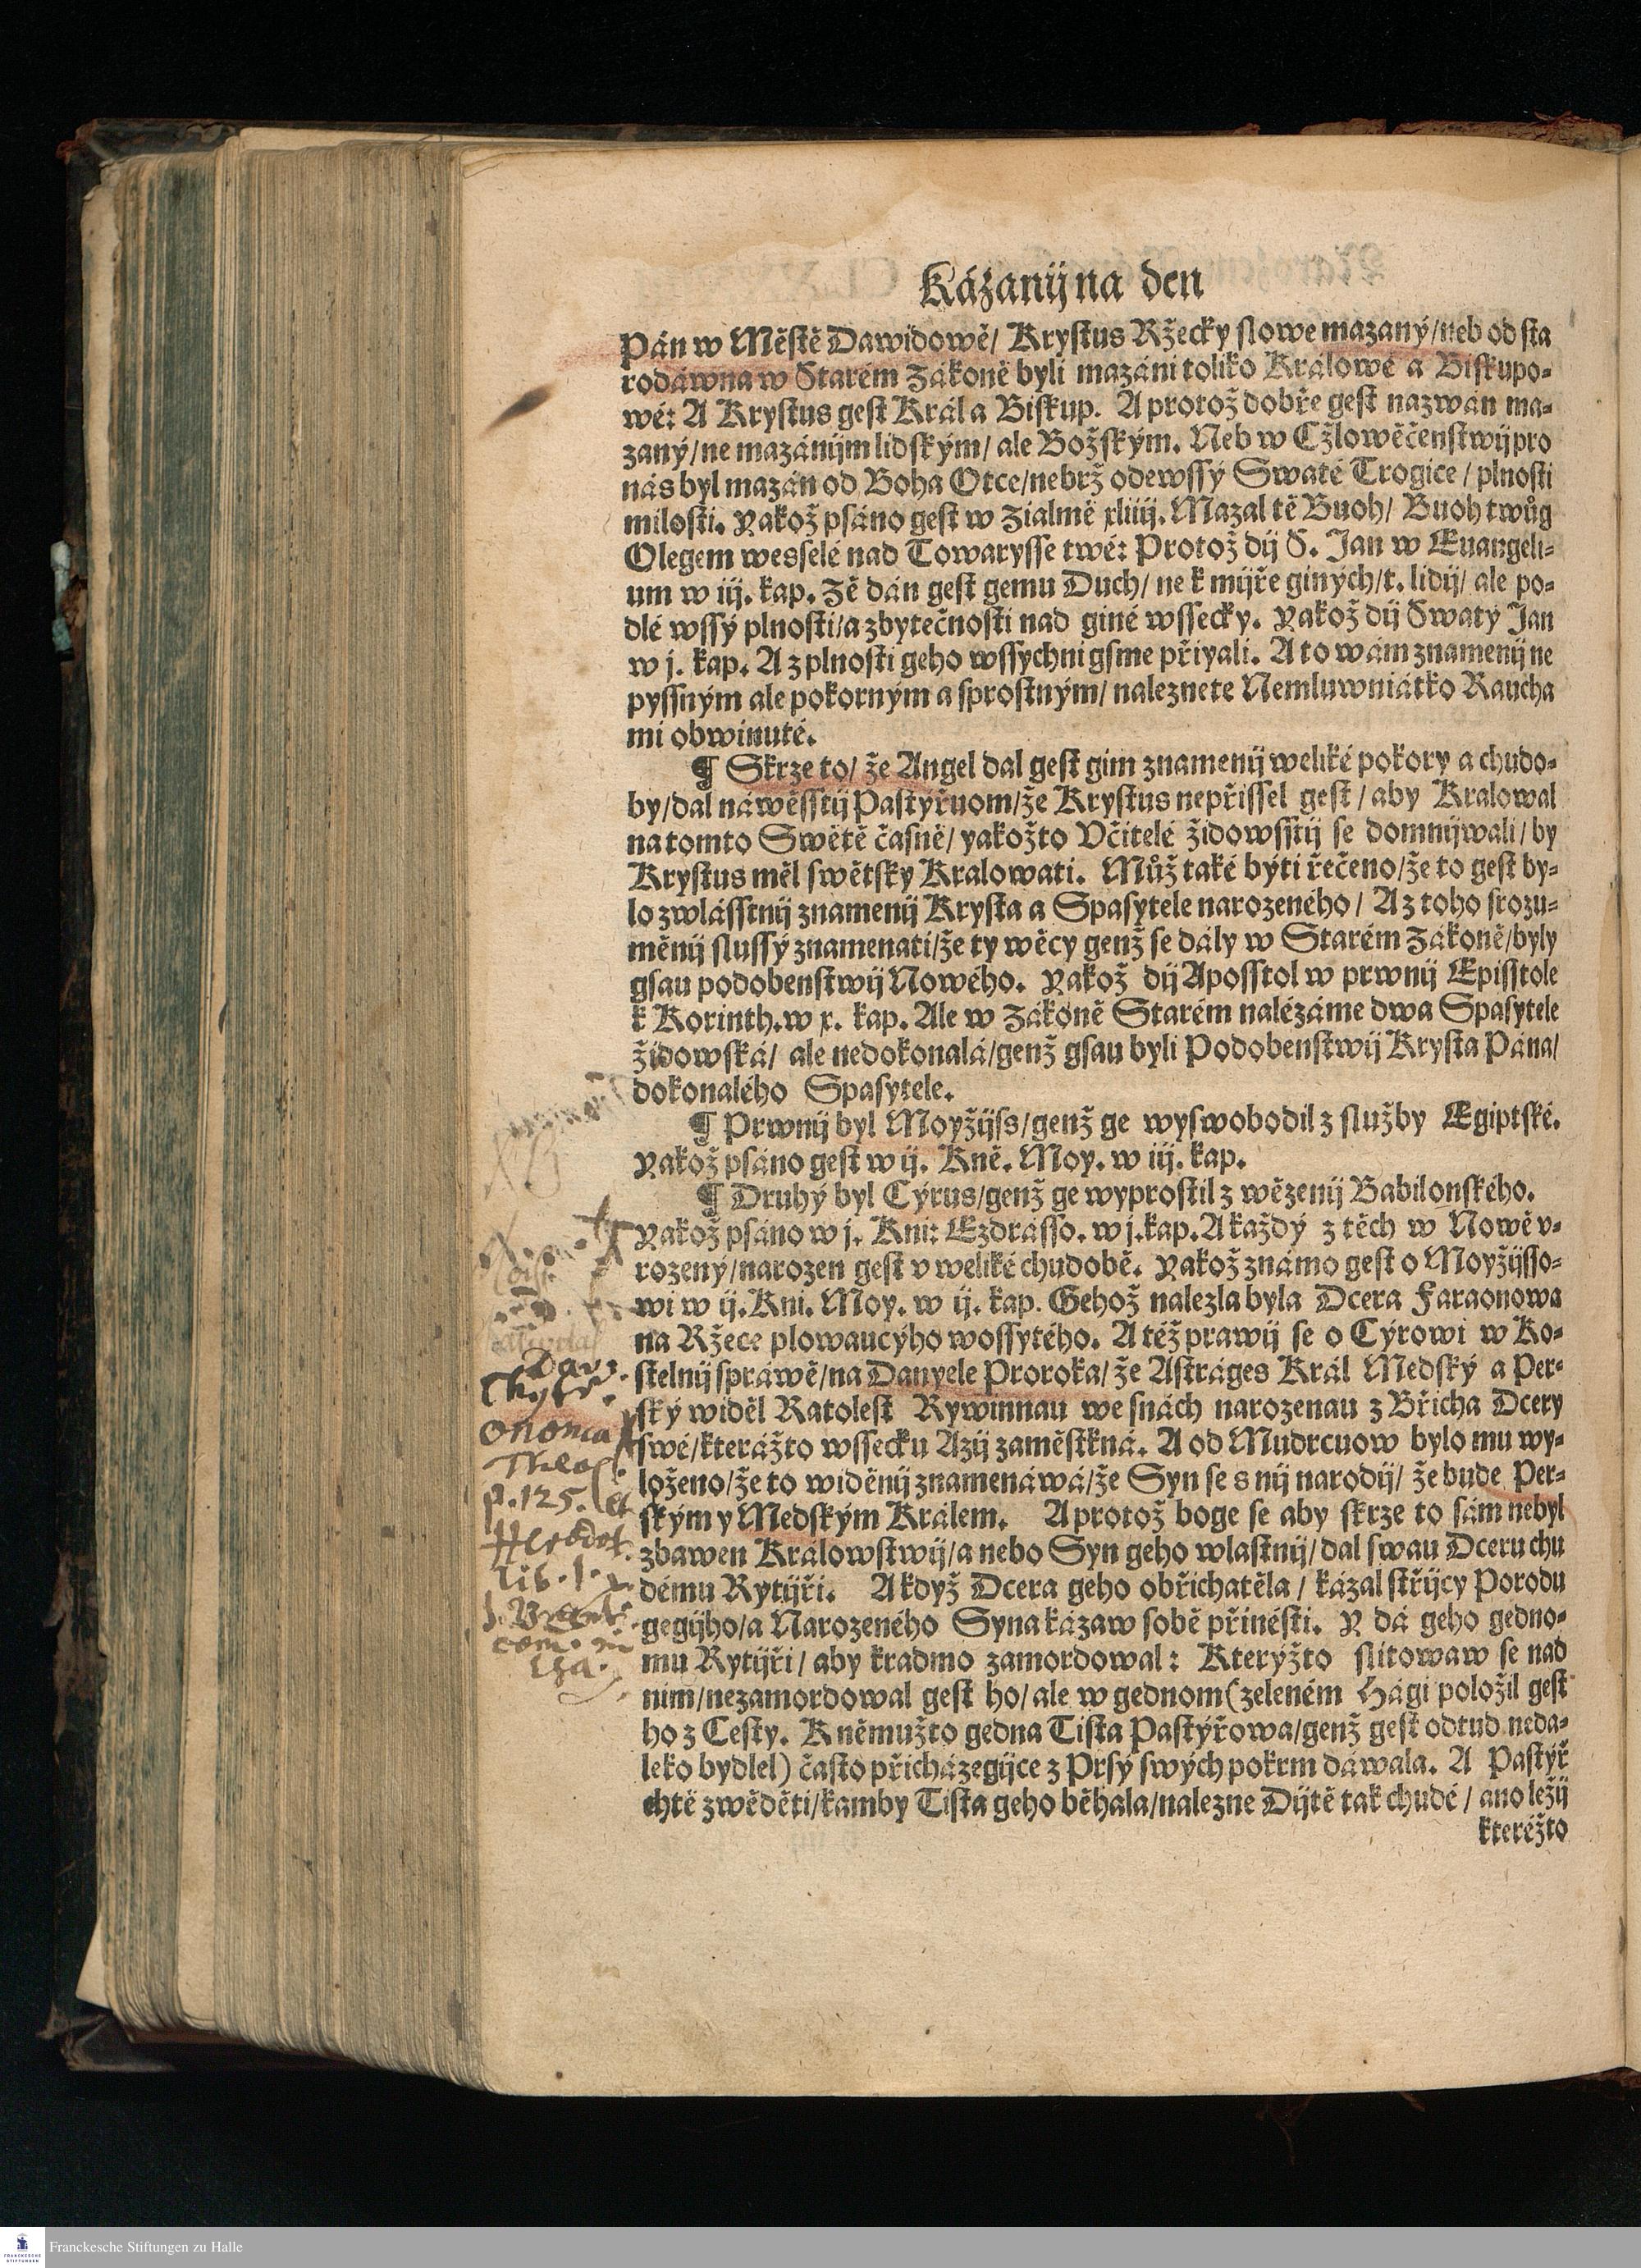 Kázanij na den
Pán w Městě Dawidowě/ Krystus Ržecky slowe mazaný/neb od sta
rodáwna w Starém Zákoně byli mazáni toliko Králowé a Biskupo-
wé: A Krystus gest Král a Biskup. A protož dobře gest nazwán ma-
zaný/ne mazánijm lidským/ ale Božským. Neb w Cžlowěčenstwij pro
nás byl mazán od Boha Otce/nebrž odewssý Swaté Trogice / plnosti
milosti. Yakož psáno gest w Zialmě xliiij. Mazal tě Buoh/ Buoh twůg
Olegem wesselé nad Towarysse twé: Protož dij S. Jan w Euangeli-
um w iij. kap. Zě dán gest gemu Duch/ ne k mijře giných/t. lidij/ ale po-
dlé wssý plnosti/a zbytečnosti nad giné wssecky. Yakož dij Swatý Jan
w j. kap. A z plnosti geho wssychni gsme přiyali. A to wám znamenij ne
pyssným ale pokorným a sprostným/ naleznete Nemluwniátko Raucha
mi obwinuté.
¶ Skrze to/ že Angel dal gest gim znamenij weliké pokory a chudo-
by/dal náwěsstij Pastýřuom/že Krystus nepřissel gest / aby Kralowal
na tomto Swětě časně/ yakožto Včitelé židowsstij se domnijwali/ by
Krystus měl swětsky Kralowati. Můž také býti řečeno/že to gest by-
lo zwlásstnij znamenij Krysta a Spasytele narozeného / A z toho srozu-
měnij slussý znamenati/že ty wěcy genž se dály w Starém Zákoně/byly
gsau podobenstwij Nowého. Yakož dij Aposstol w prwnij Episstole
k Korinth. w x. kap. Ale w Zákoně Starém nalézáme dwa Spasytele
židowská/ ale nedokonalá/genž gsau byli Podobenstwij Krysta Pána/
dokonalého Spasytele.
¶ Prwnij byl Moyžijss/genž ge wyswobodil z služby Egiptské.
Yakož psáno gest w ij. Kně. Moy. w iij. kap.
¶ Druhý byl Cýrus/genž ge wyprostil z wězenij Babilonského.
Yakož psáno w j. Kni: Ezdrásso. w j. kap. A každý z těch w Nowě v-
rozený/narozen gest v weliké chudobě. Yakož známo gest o Moyžijsso-
wi w ij. Kni. Moy. w ij. kap. Gehož nalezla byla Dcera Faraonowa
na Ržece plowaucýho wossytého. A též prawij se o Cýrowi w Ko-
stelnij spráwě/na Danyele Proroka/ že Astráges Král Medský a Per-
ský widěl Ratolest Rywinnau we snách narozenau z Břicha Dcery
swé/kterážto wssecku Azij zaměstkná. A od Mudrcuow bylo mu wy-
loženo/že to widěnij znamenáwá/že Syn se s nij narodij/ že bude Per-
ským y Medským Králem. A protož boge se aby skrze to sám nebyl
zbawen Králowstwij/a nebo Syn geho wlastnij/ dal swau Dceru chu
dému Rytijři. A když Dcera geho obřichatěla / kázal střijcy Porodu
gegijho/a Narozeného Syna kázaw sobě přinésti. Y dá geho gedno-
mu Rytijři/ aby kradmo zamordowal: Kterýžto slitowaw se nad
nim/nezamordowal gest ho/ ale w gednom (zeleném Hági položil gest
ho z Cesty. K němužto gedna Tista Pastýřowa/genž gest odtud neda-
leko bydlel) často přicházegijce z Prsý swých pokrm dáwala. A Pastýř
chtě zwěděti/kamby Tista geho běhala/nalezne Dijtě tak chudé / ano ležij
kteréžto
Dav.
Chytr.
Onomca
Theol.
p. 125. et
Herodot.
lib. 1.
com. in
Esa.
Franckesche Stiftungen zu Halle